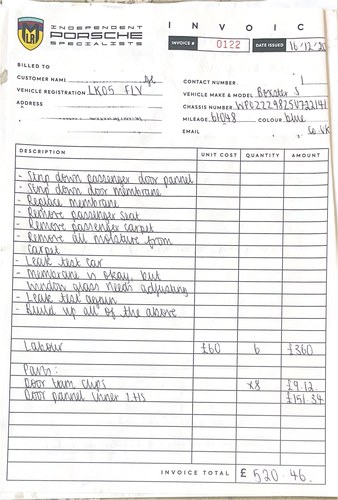 INDEPENDENT
PORSCHE
SPECIALISTS
INVOICE
INVOICE # 0122 DATE ISSUED 16/12/20
BILLED TO
CUSTOMER NAME
CONTACT NUMBER
VEHICLE REGISTRATION LK05 FLV
VEHICLE MAKE & MODEL Boxster S
ADDRESS
CHASSIS NUMBER
MILEAGE 61048 COLOUR blue
EMAIL
DESCRIPTION UNIT COST QUANTITY AMOUNT
- Strip down passenger door pannel
- Strip down door membrane
- Replace membrane
- Remove passenger seat
- Remove passenger carpet
- Remove all moisture from
carpet
- Leak test car
- Membrane is okay, but
window glass needs adjusting
- Leak test again
- Build up all of the above
Labour £60 6 £360
Parts:
Door trim clips x8 £9.12
Door pannel inner LHS £151.34
INVOICE TOTAL £ 520.46.